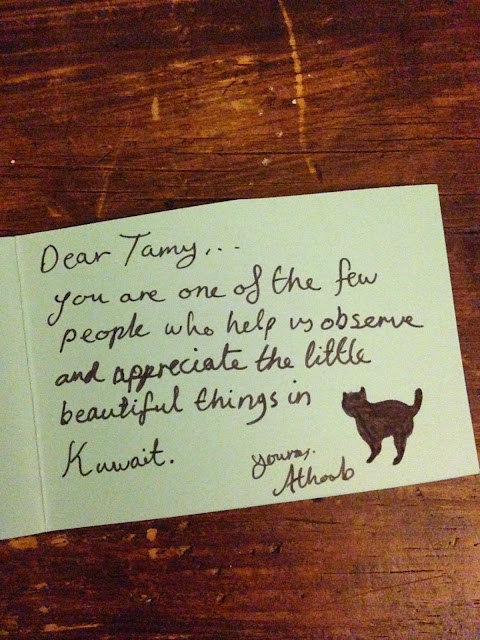 Dear Tamy...
you are one of the few
people who help us observe
and appreciate the little
beautiful things in
Kuwait.
yours,
Athoob